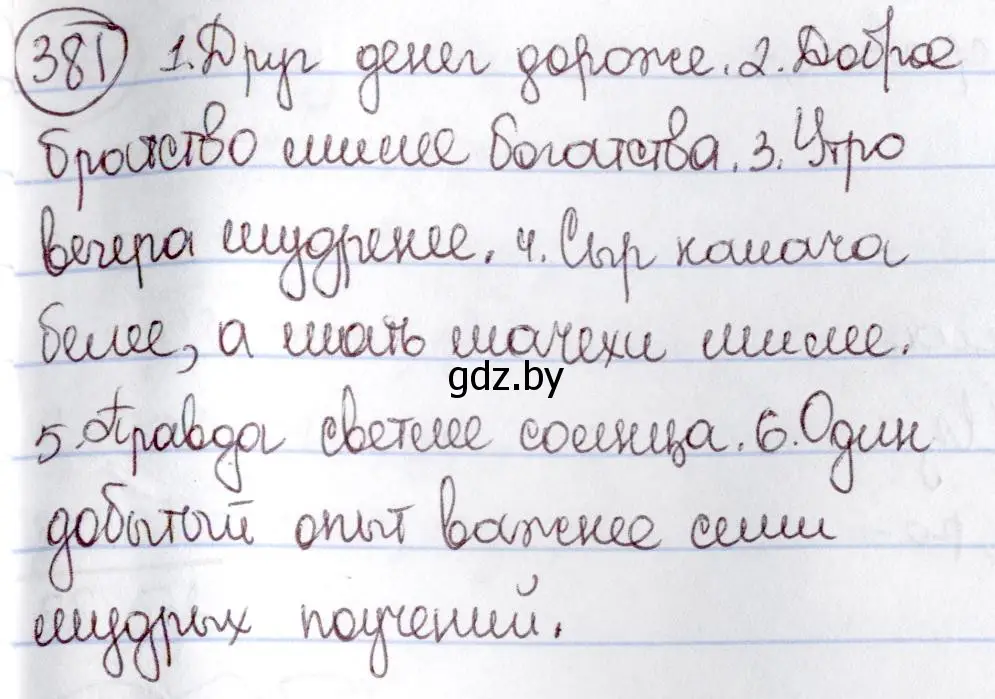 381 1. Друг денег дороже. 2. Доброе
братство милее богатства. 3. Утро
вечера мудренее. 4. Сыр калача
белее, а мать мачехи милее.
gdz.by
5. Правда светлее солнца. 6. Один
добытый опыт важнее семи
мудрых поучений.